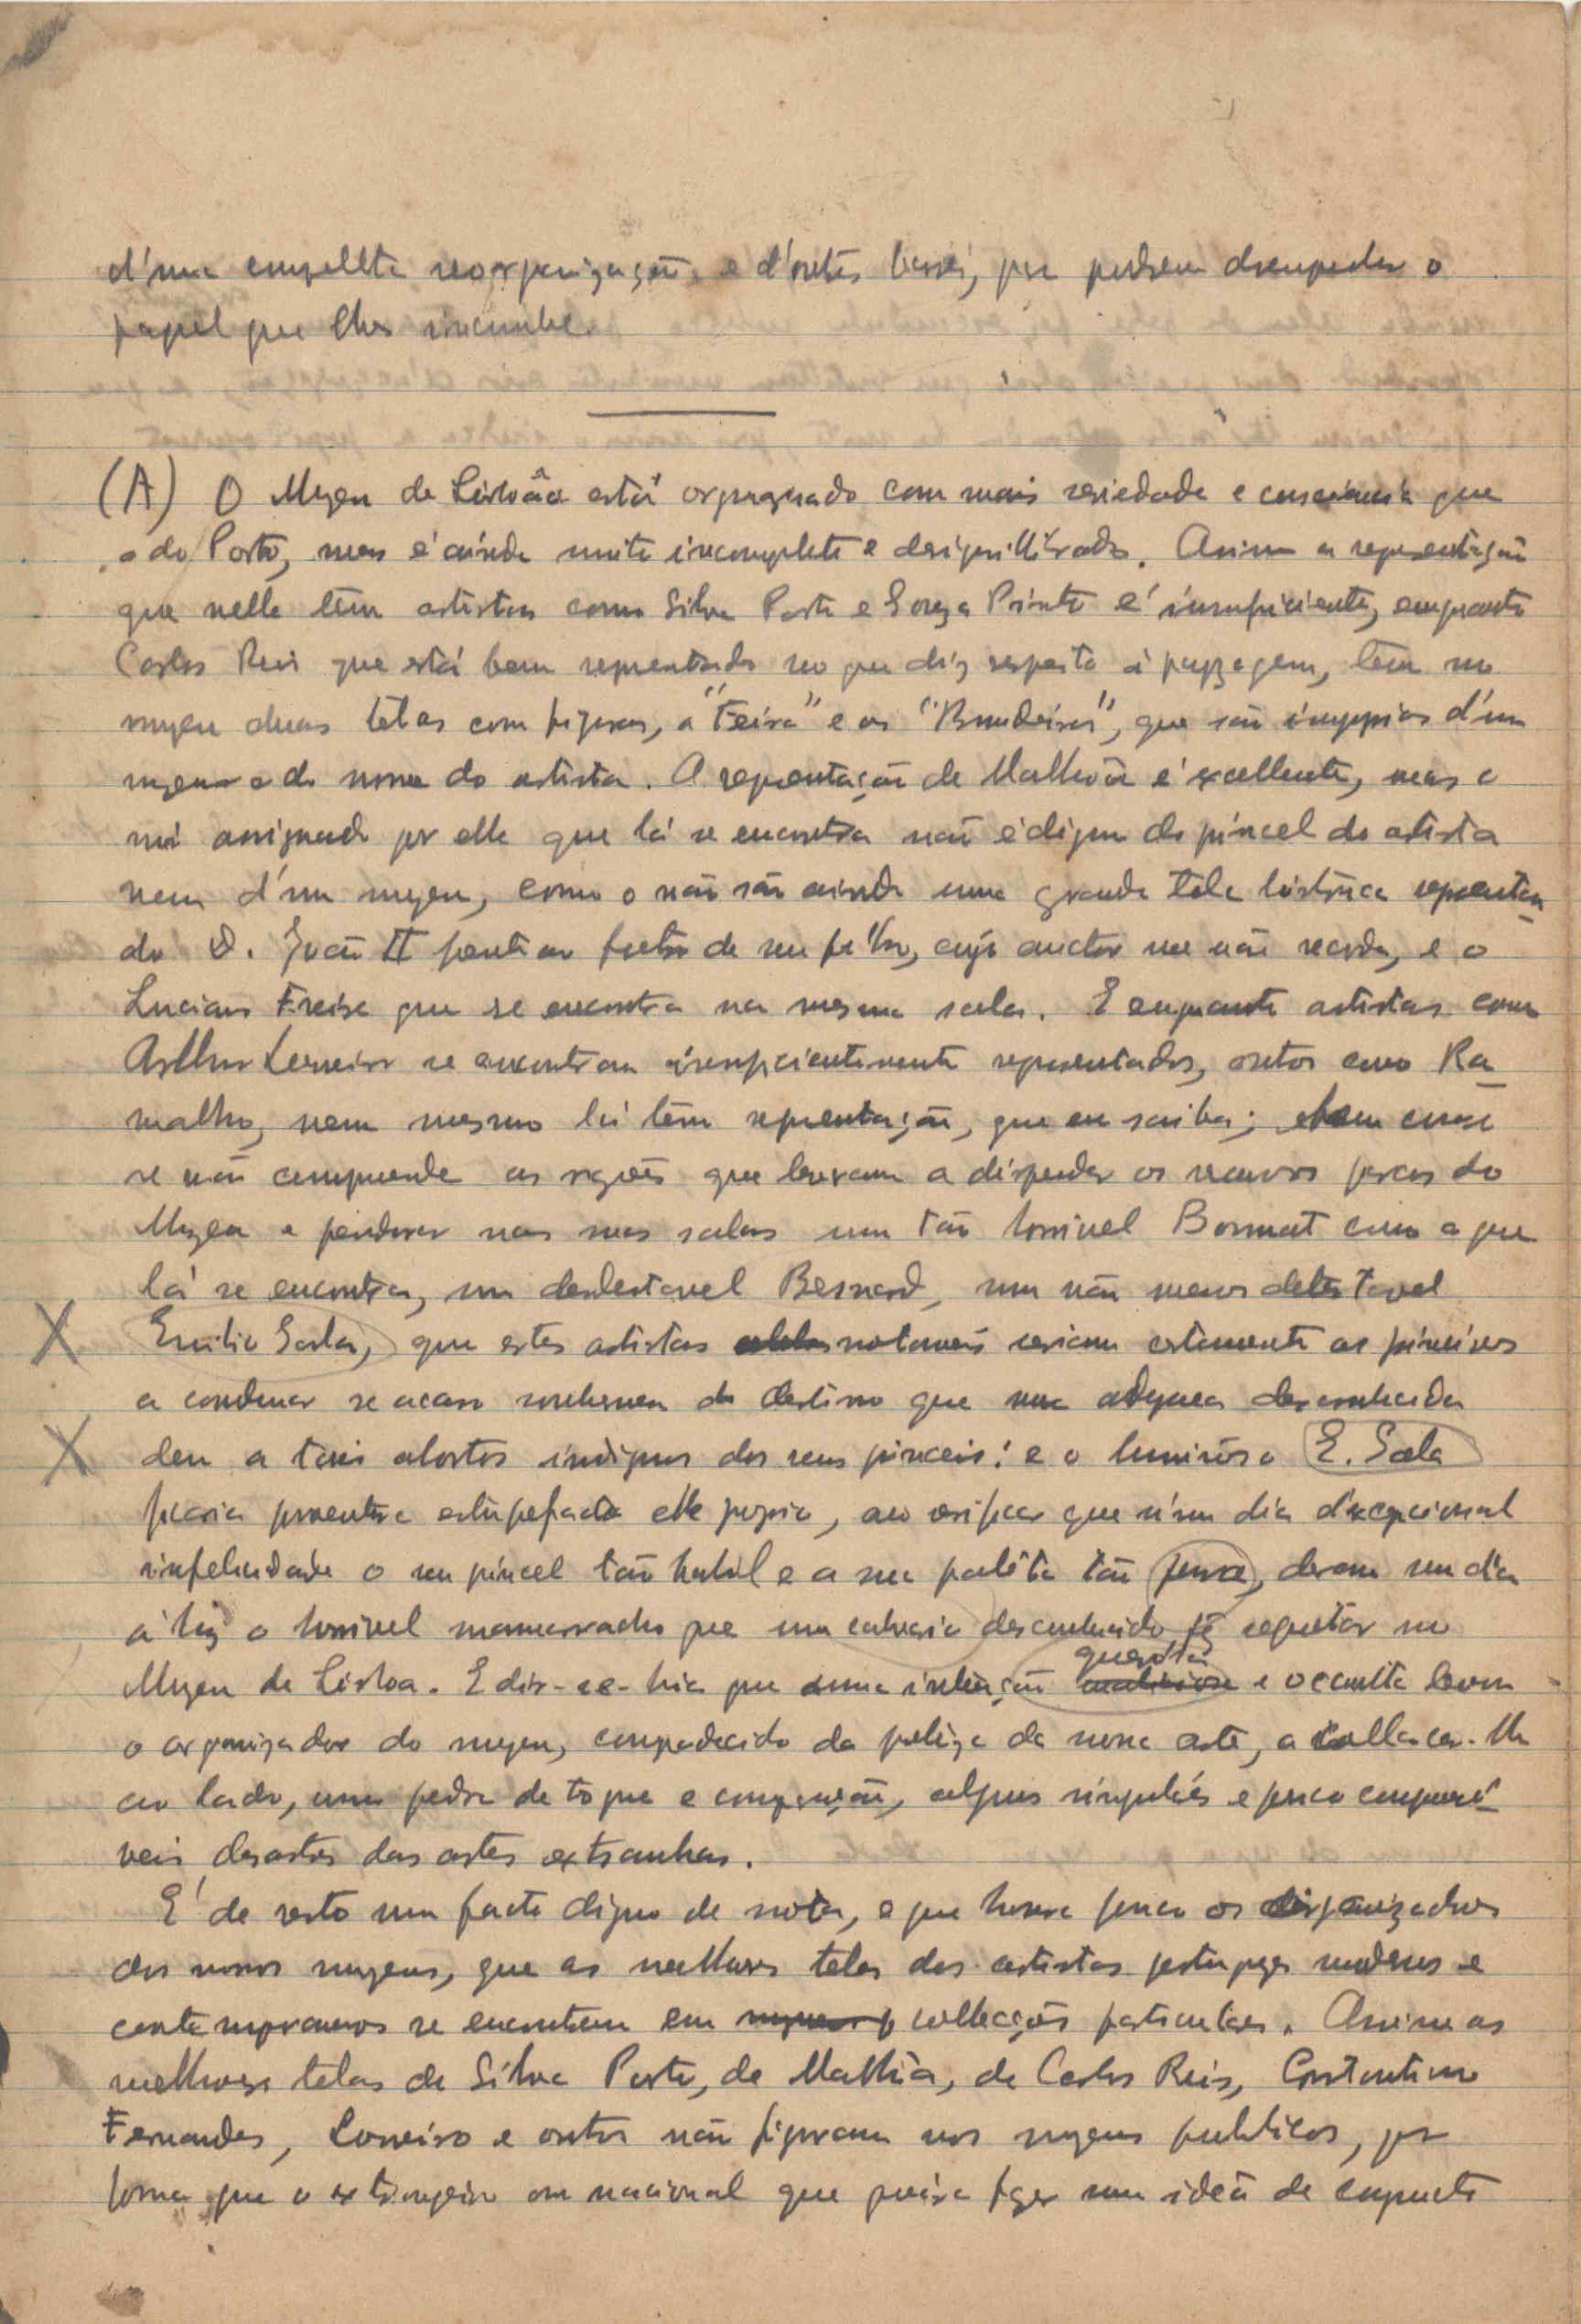 d'uma completa reorganização, e d'outras bases, para poderem desempenhar o
papel que lhes incumbe.
(A) O Muzeu de Lisboa está organizado com mais seriedade e consciencia que
o do Porto, mas é ainda muito incompleto e desiquillibrado. Assim a representação
que nelle têm artistas como Silva Porto e Souza Pinto é insuficiente, emquanto
Carlos Reis que está bem representado no que diz respeito á payzagem, tem no
muzeu duas telas com figuras, a "Feira" e as "Bandeiras", que são improprias d'um
muzeu e do nome do artista. A representação de Malhôa é excellente, mas o
nú assignado por elle que lá se encontra não é digno do pincel do artista
nem d'um muzeu, como o não são ainda uma grande tela historica representan-
do D. João II perante o de seu filho, cujo auctor me não recorda, e o
Luciano Freire que se encontra na mesma sala. E emquanto artistas como
Arthur Loureiro se encontram insuficientemente representados, outros como Ra-
malho, nem mesmo lá têm representação, que eu saiba; nem
se não comprehende as razões que levaram a dispender os recursos parcos do
Muzeu e pendurar nas suas salas um tão horrivel Bonnat como o que
lá se encontra, um detestavel Besnard, um não menos detestavel
X Emilio Sala, que estes artistas notaveis seriam certamente os primeiros
a condenar se acaso soubessem do destino que uma desconhecida
X deu a tais abortos indignos dos seus pinceis: e o luminoso E. Sala
ficaria porventura estupefacto elle proprio, ao verificar que n'um dia d'excepcional
infelicidade o seu pincel tão habil e a sua palêta tão pura, deram um dia
á luz o horrivel mamarracho que um desconhecido fez no
Muzeu de Lisboa. E dir-se-hia que uma intenção e occulta levou
o organizador do muzeu, compadecido da pobreza da nossa arte, a collocar-lhe
ao lado, uma pedra de toque e comparação, alguns singulares e pouco compará-
veis desastres das artes extranhas.
É de resto um facto digno de nota, e que honra pouco os organizadores
dos nossos muzeus, que as melhores telas dos artistas portuguezes modernos e
contemporaneos se encontram em collecções particulares. Assim as
melhores telas de Silva Porto, de Malhôa, de Carlos Reis, Constantino
Fernandes, Loureiro e outros não figuram nos muzeus publicos, por
forma que o extrangeiro ou nacional que queira fazer uma idéa de conjuncto